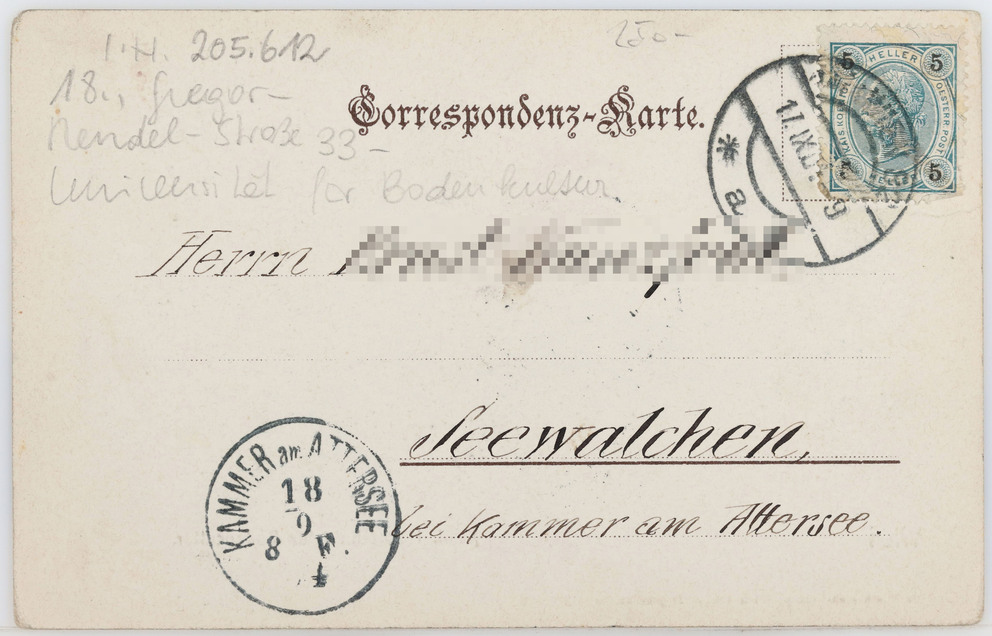 I.N. 205.612
250-
18., Gregor-
Mendel-Straße 33-
Universität für Bodenkultur
Correspondenz-Karte.
5 HELLER 5
KAIS. KÖN. OESTERR. POST
5 HELLER 5
17.IX.
* a
Herrn
Seewalchen,
bei Kammer am Attersee.
KAMMER am ATTERSEE
18
9
8 F.
4